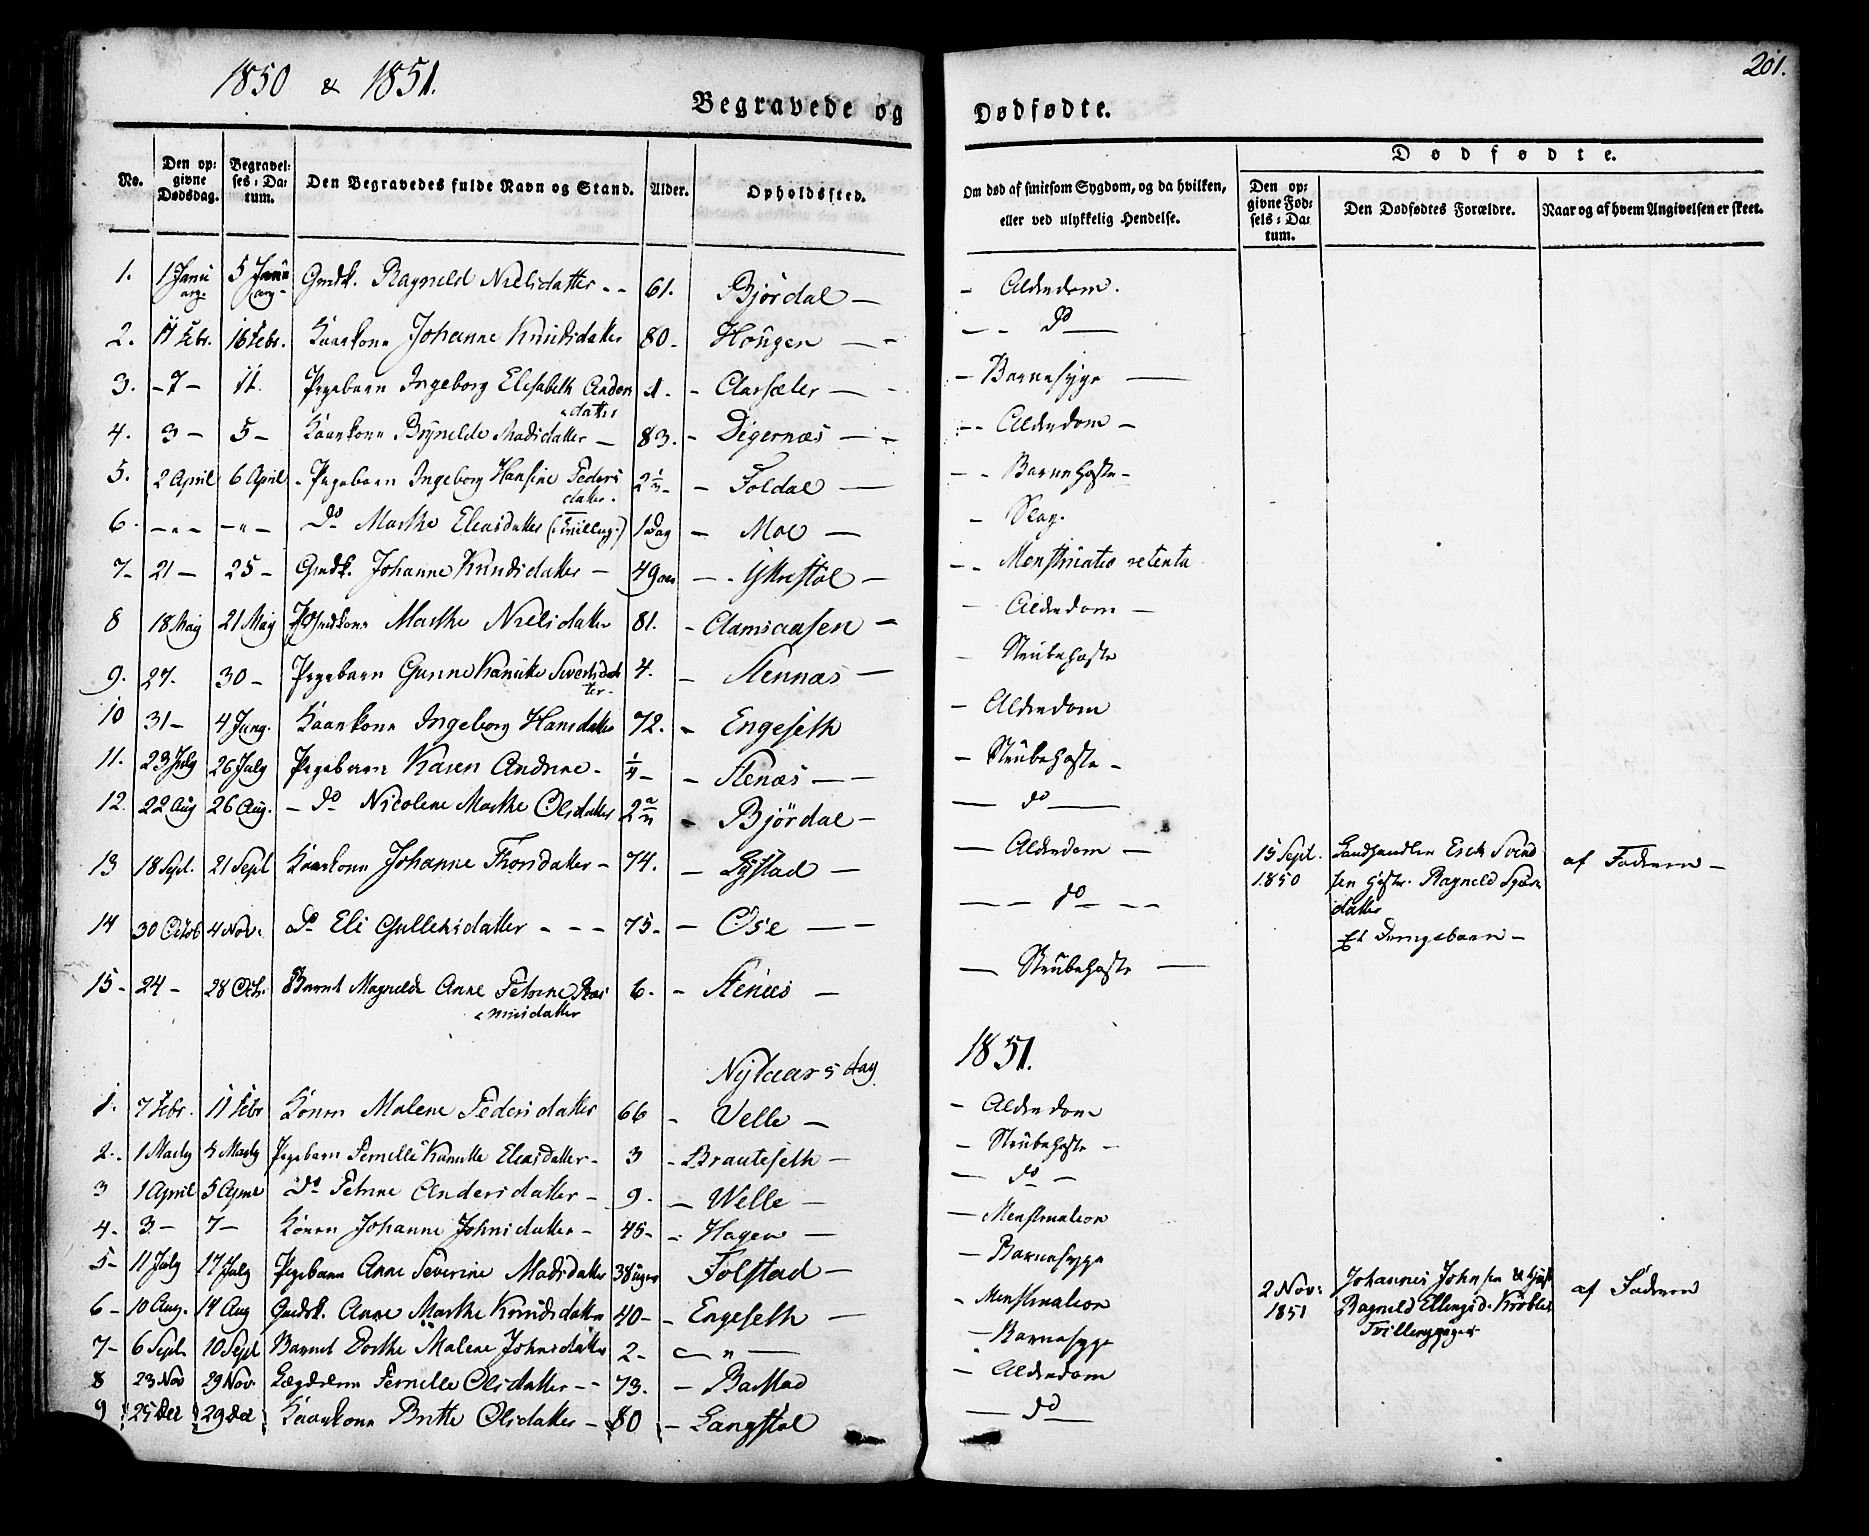 1850 & 1851.
201.
Begravede og Dødfødte.
No.
Den opgivne Dødsdag.
Begravelses-Datum.
Den Begravedes fulde Navn og Stand.
Alder.
Opholdssted.
Om død af smitsom Sygdom, og da hvilken, eller ved ulykkelig Hendelse.
Dødfødte.
Den opgivne Fødsels-Datum.
Den Dødfødtes Forældre.
Naar og af hvem Angivelsen er skeet.
1. 1 Januarg. 5 Januarg Gmdk. Ragnild Nielsdatter - - 61. Bjørdal — - Alderdom.
2. 11 Febr. 16 Febr. Kaarkone Johanne Knudsdatter 80 - Hougen — - do —
3. - 7 - 11. Pigebarn Ingeborg Elisabeth Anders
datter 1. - Aarsæter — - Barnesyge —
4. 3 - 5 - Kaarkone Brynilde Madsdatter - 83. - Digernæs - - Alderdom -
5. 2 April 6 April - Pigebarn Ingeborg Hansine Peders
datter. - Foldal — - Barnehoste -
6. - " - - " - do Marthe Eleasdatter (Tvilling) 1 Dag - Moe — - Slag.
7 - 21 - 25 - Gmdk. Johanne Knudsdatter - 49 - Yttrestøl - - Menstruatio retenta
8 18 Maij 21 Maij Marthe Nielsdatter 81. - Aamsaasen - - Alderdom -
9. 27. 30 - Pigebarn Gunne Kanutte Sivertsdat
ter. 4. - Stennæs - - Strubehoste
10 31 - 4 Jung. Kaarkone Ingeborg Hansdatter 72. - Engeseth - Alderdom
11. 23 July 26 July Pigebarn Karen Andrine - 1/4 - - Stenæs - - - Strubehoste -
12. 22 Aug 26 Aug. - do Nicolene Marthe Olsdatter - Bjørdal - - do —
13 18 Sept. 21 Sept Kaarkone Johanne Thorsdatter - 74. - Lystad - - Alderdom -
15 Sept. 1850
Landhandler Erik Svend
sen Hustr. Ragnild
datter
Et Drengebarn -
af Faderen -
14 30 Octob 4 Nov. do Eli Gulleksdatter - - - 75 - - Ose - - - do - - -
15 - 24 - 28 Octr. Barnet Magnilde Anne Petrine Ras
musdatter 6. - Stenæs - - Strubehoste —
Nytaarsdag 1851.
1. 7 Febr. 11 Febr Konen Malene Pedersdatter 66 - Velle - - Alderdom
2. 1 Marty 4 Marty Pigebarn Pernille Kanutte Eleasdatter - 3 - Brauteseth - - Strubehoste -
3 1 April 5 April do Petrine Andersdatter - 9. - Welle - - do -
4 - 3 - 7 - Konen Johanne Johnsdatter - 45 - - Hagen - - Menstruation
5 - 11 July 17 July Pigebarn Anne Severine Madsdatter 38 uger Tolstad - - Barnesyge
6 - 10 Aug. 14 Aug Gmdk. Anne Marthe Knudsdatter 40 - - Engeseth - - Menstruation
2 Nov. 1851
Johannes Johnsen &
Ragnild Ellingsd.
Tvillingpiger
af Faderen
7 - 6 Sept. 10 Sept Barnet Dorthe Malene Johnsdatter 2 - - " — - Barnesyge
8 23 Nov 29 Nov. Lægdslem Pernille Olsdatter - - 73. - Bastad - Alderdom
9 25 Dec 29 Dec Kaarkone Britte Olsdatter - 80 - Langstøl — do —